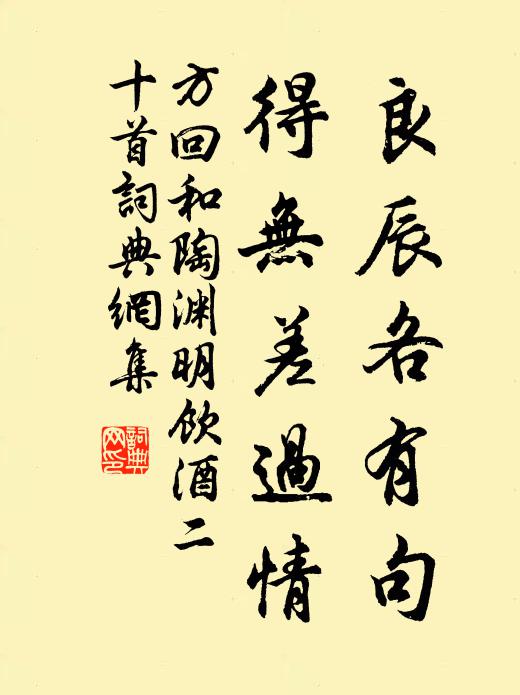 良辰各有句
得無差過情
方回和陶渊明飲酒二
十首詞典網集
詞典
网印